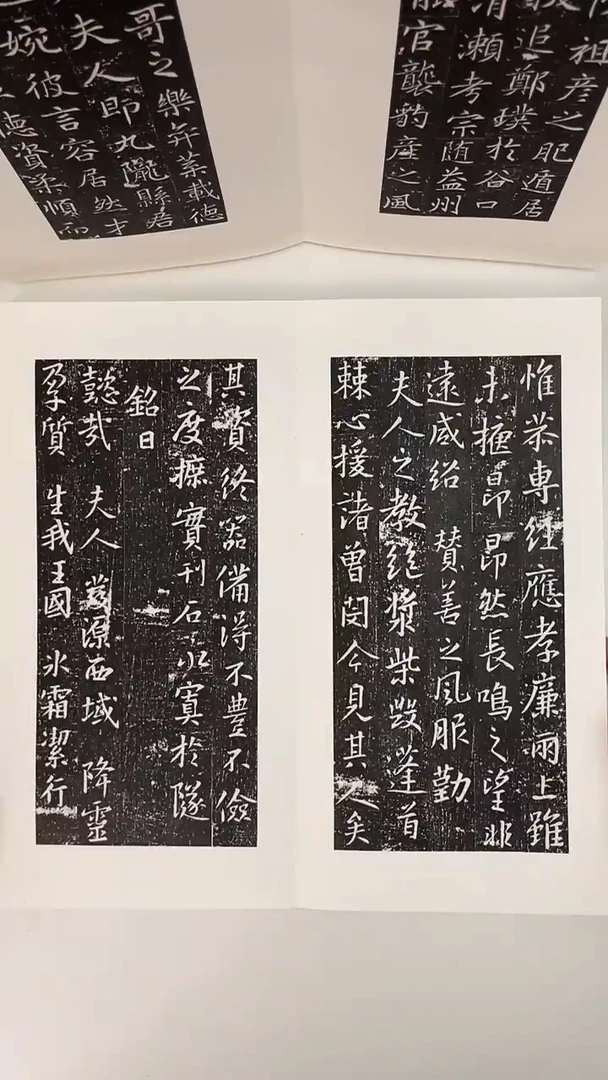 祖彥之肥遁居
追鄭璞於谷口
清瀨考宗随益州
官龔豹產之風
哥之樂弁菜載德
夫人即九隴縣君
婉彼言容居然才
德資柔順而
惟恭專經應孝廉兩上雖
未擢昂昂然長鳴之望非
遠咸紹 贊善之風服勤
夫人之教絕漿柴毀蓬首
棘心援諸曾閔今見其人矣
其資終器備得不豊不儉
之度摭實刊石以寘於隧
銘曰
懿哉 夫人 發源西域 降靈
孕質 生我王國 氷霜潔行